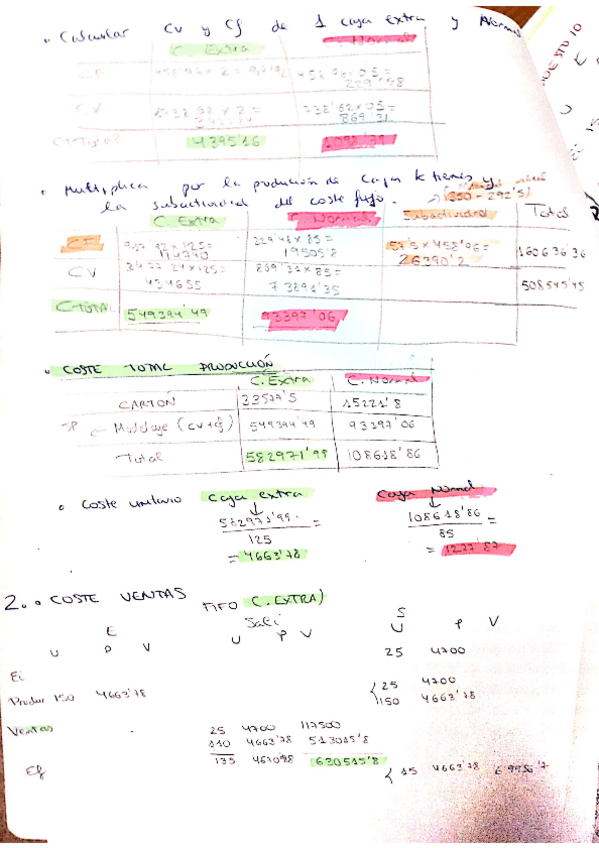 • Calcular CV y Cf de 1 caja extra y Normal
C. Extra C. Normal
CF 458'96 x 2 = 917'92 458'96 x 0'5 = 229'48
CV 1738'62 x 2 = 1738'62 x 0'5 = 869'31
C Total 4395'16
• Multiplica por la producción de cajas k tienes y
la subactividad del coste fijo. (350 - 292'5)
C. Extra C. Normal Subactividad Total
CF 917'92 x 125 = 114740 229'48 x 85 = 19505'8 57'5 x 458'96 = 26390'2 160636'36
CV 3477'24 x 125 = 434655 869'31 x 85 = 73891'35 508545'45
C TOTAL 549394'49 93397'06
• COSTE TOTAL PRODUCCIÓN
C. Extra C. Normal
CARTÓN 33577'5 15221'8
Moldaje (CV + cf) 549394'49 93397'06
Total 582971'99 108618'86
• Coste unitario Caja extra Caja Normal
582971'99 = 108618'86 =
125 85
= 4663'78 = 1277'87
2. • COSTE VENTAS FIFO C. EXTRA)
E Sali S
U P V U P V U P V
25 4700
Ei
25 4700
Produc 150 4663'78 150 4663'78
Ventas 25 4700 117500
110 4663'78 513015'8
135 630515'8
Ef 15 4663'78 69956'7